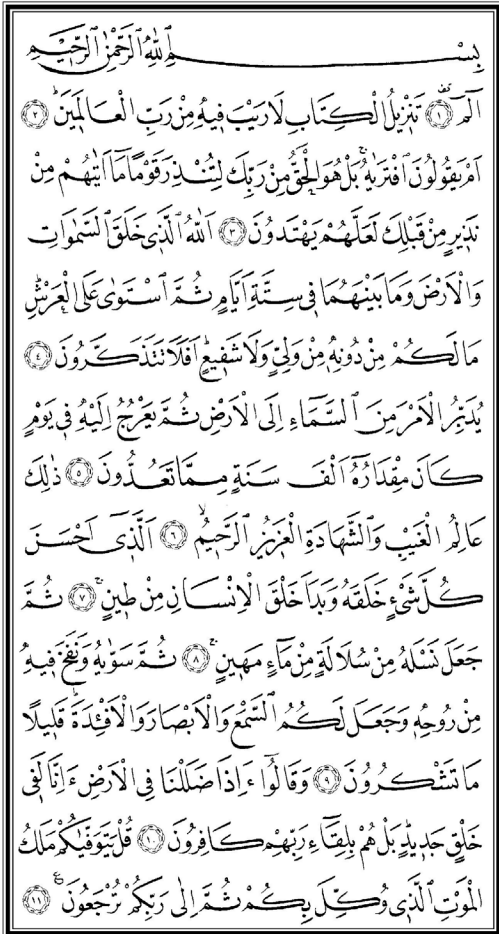 بِسْمِ اللّٰهِ الرَّحْمٰنِ الرَّح۪يمِ
الٓمٓۜ ﴿١﴾ تَنْز۪يلُ الْكِتَابِ لَا رَيْبَ ف۪يهِ مِنْ رَبِّ الْعَالَم۪ينَۜ ﴿٢﴾
اَمْ يَقُولُونَ افْتَرٰيهُۚ بَلْ هُوَ الْحَقُّ مِنْ رَبِّكَ لِتُنْذِرَ قَوْمًا مَٓا اَتٰيهُمْ مِنْ
نَذ۪يرٍ مِنْ قَبْلِكَ لَعَلَّهُمْ يَهْتَدُونَ ﴿٣﴾ اَللّٰهُ الَّذ۪ي خَلَقَ السَّمٰوَاتِ
وَالْاَرْضَ وَمَا بَيْنَهُمَا ف۪ي سِتَّةِ اَيَّامٍ ثُمَّ اسْتَوٰى عَلَى الْعَرْشِۜ
مَا لَكُمْ مِنْ دُونِه۪ مِنْ وَلِيٍّ وَلَا شَف۪يعٍۜ اَفَلَا تَتَذَكَّرُونَ ﴿٤﴾
يُدَبِّرُ الْاَمْرَ مِنَ السَّمَٓاءِ اِلَى الْاَرْضِ ثُمَّ يَعْرُجُ اِلَيْهِ ف۪ي يَوْمٍ
كَانَ مِقْدَارُهُٓ اَلْفَ سَنَةٍ مِمَّا تَعُدُّونَ ﴿٥﴾ ذٰلِكَ
عَالِمُ الْغَيْبِ وَالشَّهَادَةِ الْعَز۪يزُ الرَّح۪يمُۙ ﴿٦﴾ اَلَّذ۪ٓي اَحْسَنَ
كُلَّ شَيْءٍ خَلَقَهُ وَبَدَاَ خَلْقَ الْاِنْسَانِ مِنْ ط۪ينٍۚ ﴿٧﴾ ثُمَّ
جَعَلَ نَسْلَهُ مِنْ سُلَالَةٍ مِنْ مَٓاءٍ مَه۪ينٍۚ ﴿٨﴾ ثُمَّ سَوّٰيهُ وَنَفَخَ ف۪يهِ
مِنْ رُوحِه۪ وَجَعَلَ لَكُمُ السَّمْعَ وَالْاَبْصَارَ وَالْاَفْـِٔدَةَۜ قَل۪يلًا
مَا تَشْكُرُونَ ﴿٩﴾ وَقَالُٓوا ءَاِذَا ضَلَلْنَا فِي الْاَرْضِ ءَاِنَّا لَف۪ي
خَلْقٍ جَد۪يدٍۜ بَلْ هُمْ بِلِقَٓاءِ رَبِّهِمْ كَافِرُونَ ﴿١٠﴾ قُلْ يَتَوَفّٰيكُمْ مَلَكُ
الْمَوْتِ الَّذ۪ي وُكِّلَ بِكُمْ ثُمَّ اِلٰى رَبِّكُمْ تُرْجَعُونَ۟ ﴿١١﴾